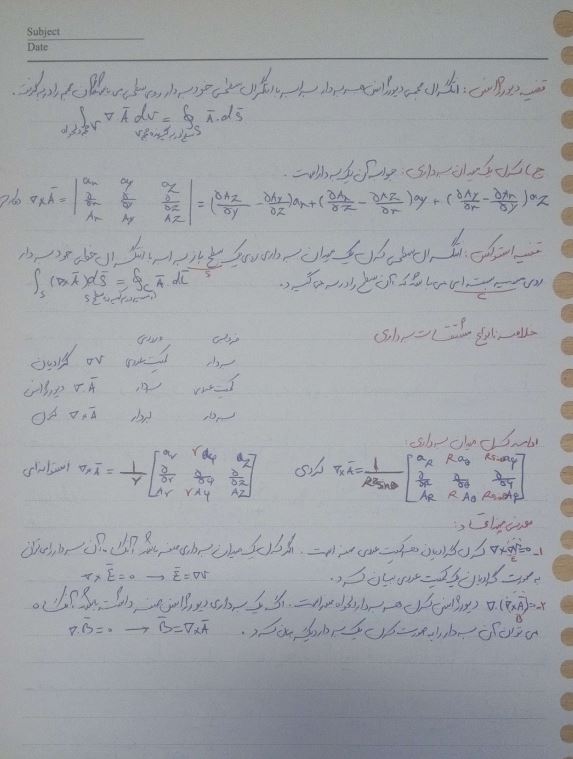 Subject
Date
قضیه دیورژانس : انتگرال حجمی دیورژانس هر بردار برابر است با انتگرال سطحی خود بردار روی سطحی که حجم را در بر گرفت .
∫v ∇.Ā dv = ∮s Ā.ds̄
ج) کرل یک میدان برداری : حواصل آن یک بردار است.
∇×Ā = | ax ay az ; ∂/∂x ∂/∂y ∂/∂z ; Ax Ay Az | = (∂Az/∂y - ∂Ay/∂z)ax + (∂Ax/∂z - ∂Az/∂x)ay + (∂Ay/∂x - ∂Ax/∂y)az
قضیه استوکس : انتگرال سطحی کرل یک میدان برداری روی یک سطح باز برابر است با انتگرال خطی خود بردار
روی مسیر بسته ای می باشد که آن سطح را در بر می گیرد.
∫s (∇×Ā)ds̄ = ∮c Ā.dL̄
خلاصه نتایج مشتقات برداری
ورودی خروجی
گرادیان ∇V کمیت عددی بردار
دیورژانس ∇.Ā بردار کمیت عددی
کرل ∇×Ā بردار بردار
ادامه کرل میدان برداری :
استوانه ای ∇×Ā = 1/r [ ar raφ az ; ∂/∂r ∂/∂φ ∂/∂z ; Ar rAφ Az ]
کروی ∇×Ā = 1/R²sinθ [ aR Raθ Rsinθaφ ; ∂/∂R ∂/∂θ ∂/∂φ ; AR RAθ RsinθAφ ]
1- ∇×∇V=0 کرل گرادیان هر کمیت عددی صفر است . اگر کرل یک میدان برداری صفر باشد آنگاه آن بردار را می توان
به صورت گرادیان یک کمیت عددی بیان کرد .
∇×Ē=0 → Ē=∇V
2- ∇.(∇×Ā)=0 دیورژانس کرل هر بردار دلخواه صفر است . اگر یک برداری دیورژانس صفر داشته باشد آنگاه
می توان آن بردار را به صورت کرل یک بردار دیگر بیان کرد .
∇.B̄=0 → B̄=∇×Ā